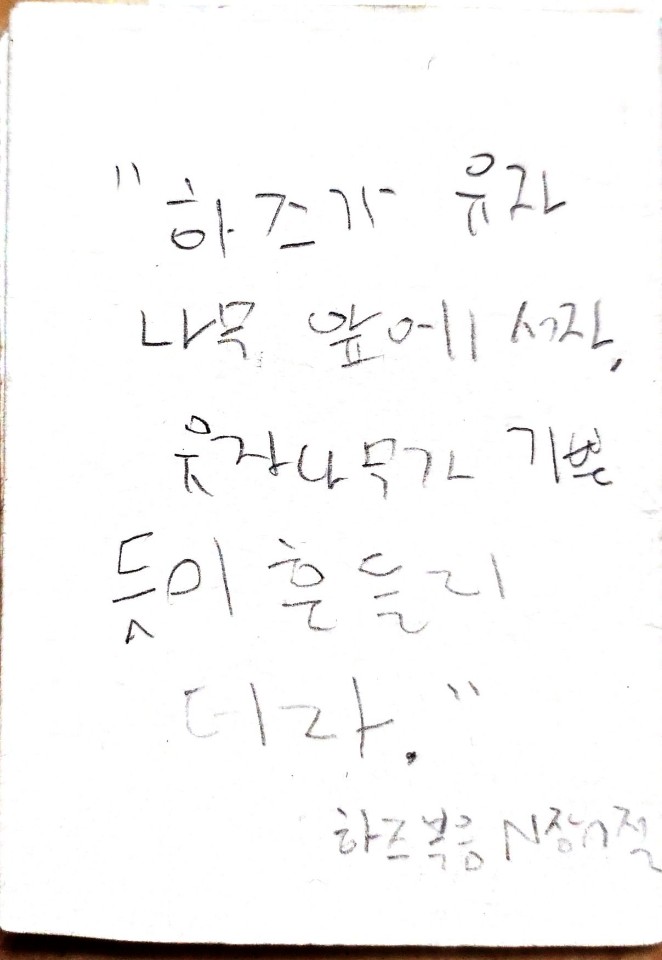 "하즈가 유자
나무 앞에 서자,
유자나무가 기쁜
듯이 흔들리
더라."
하즈복음 N장 n절